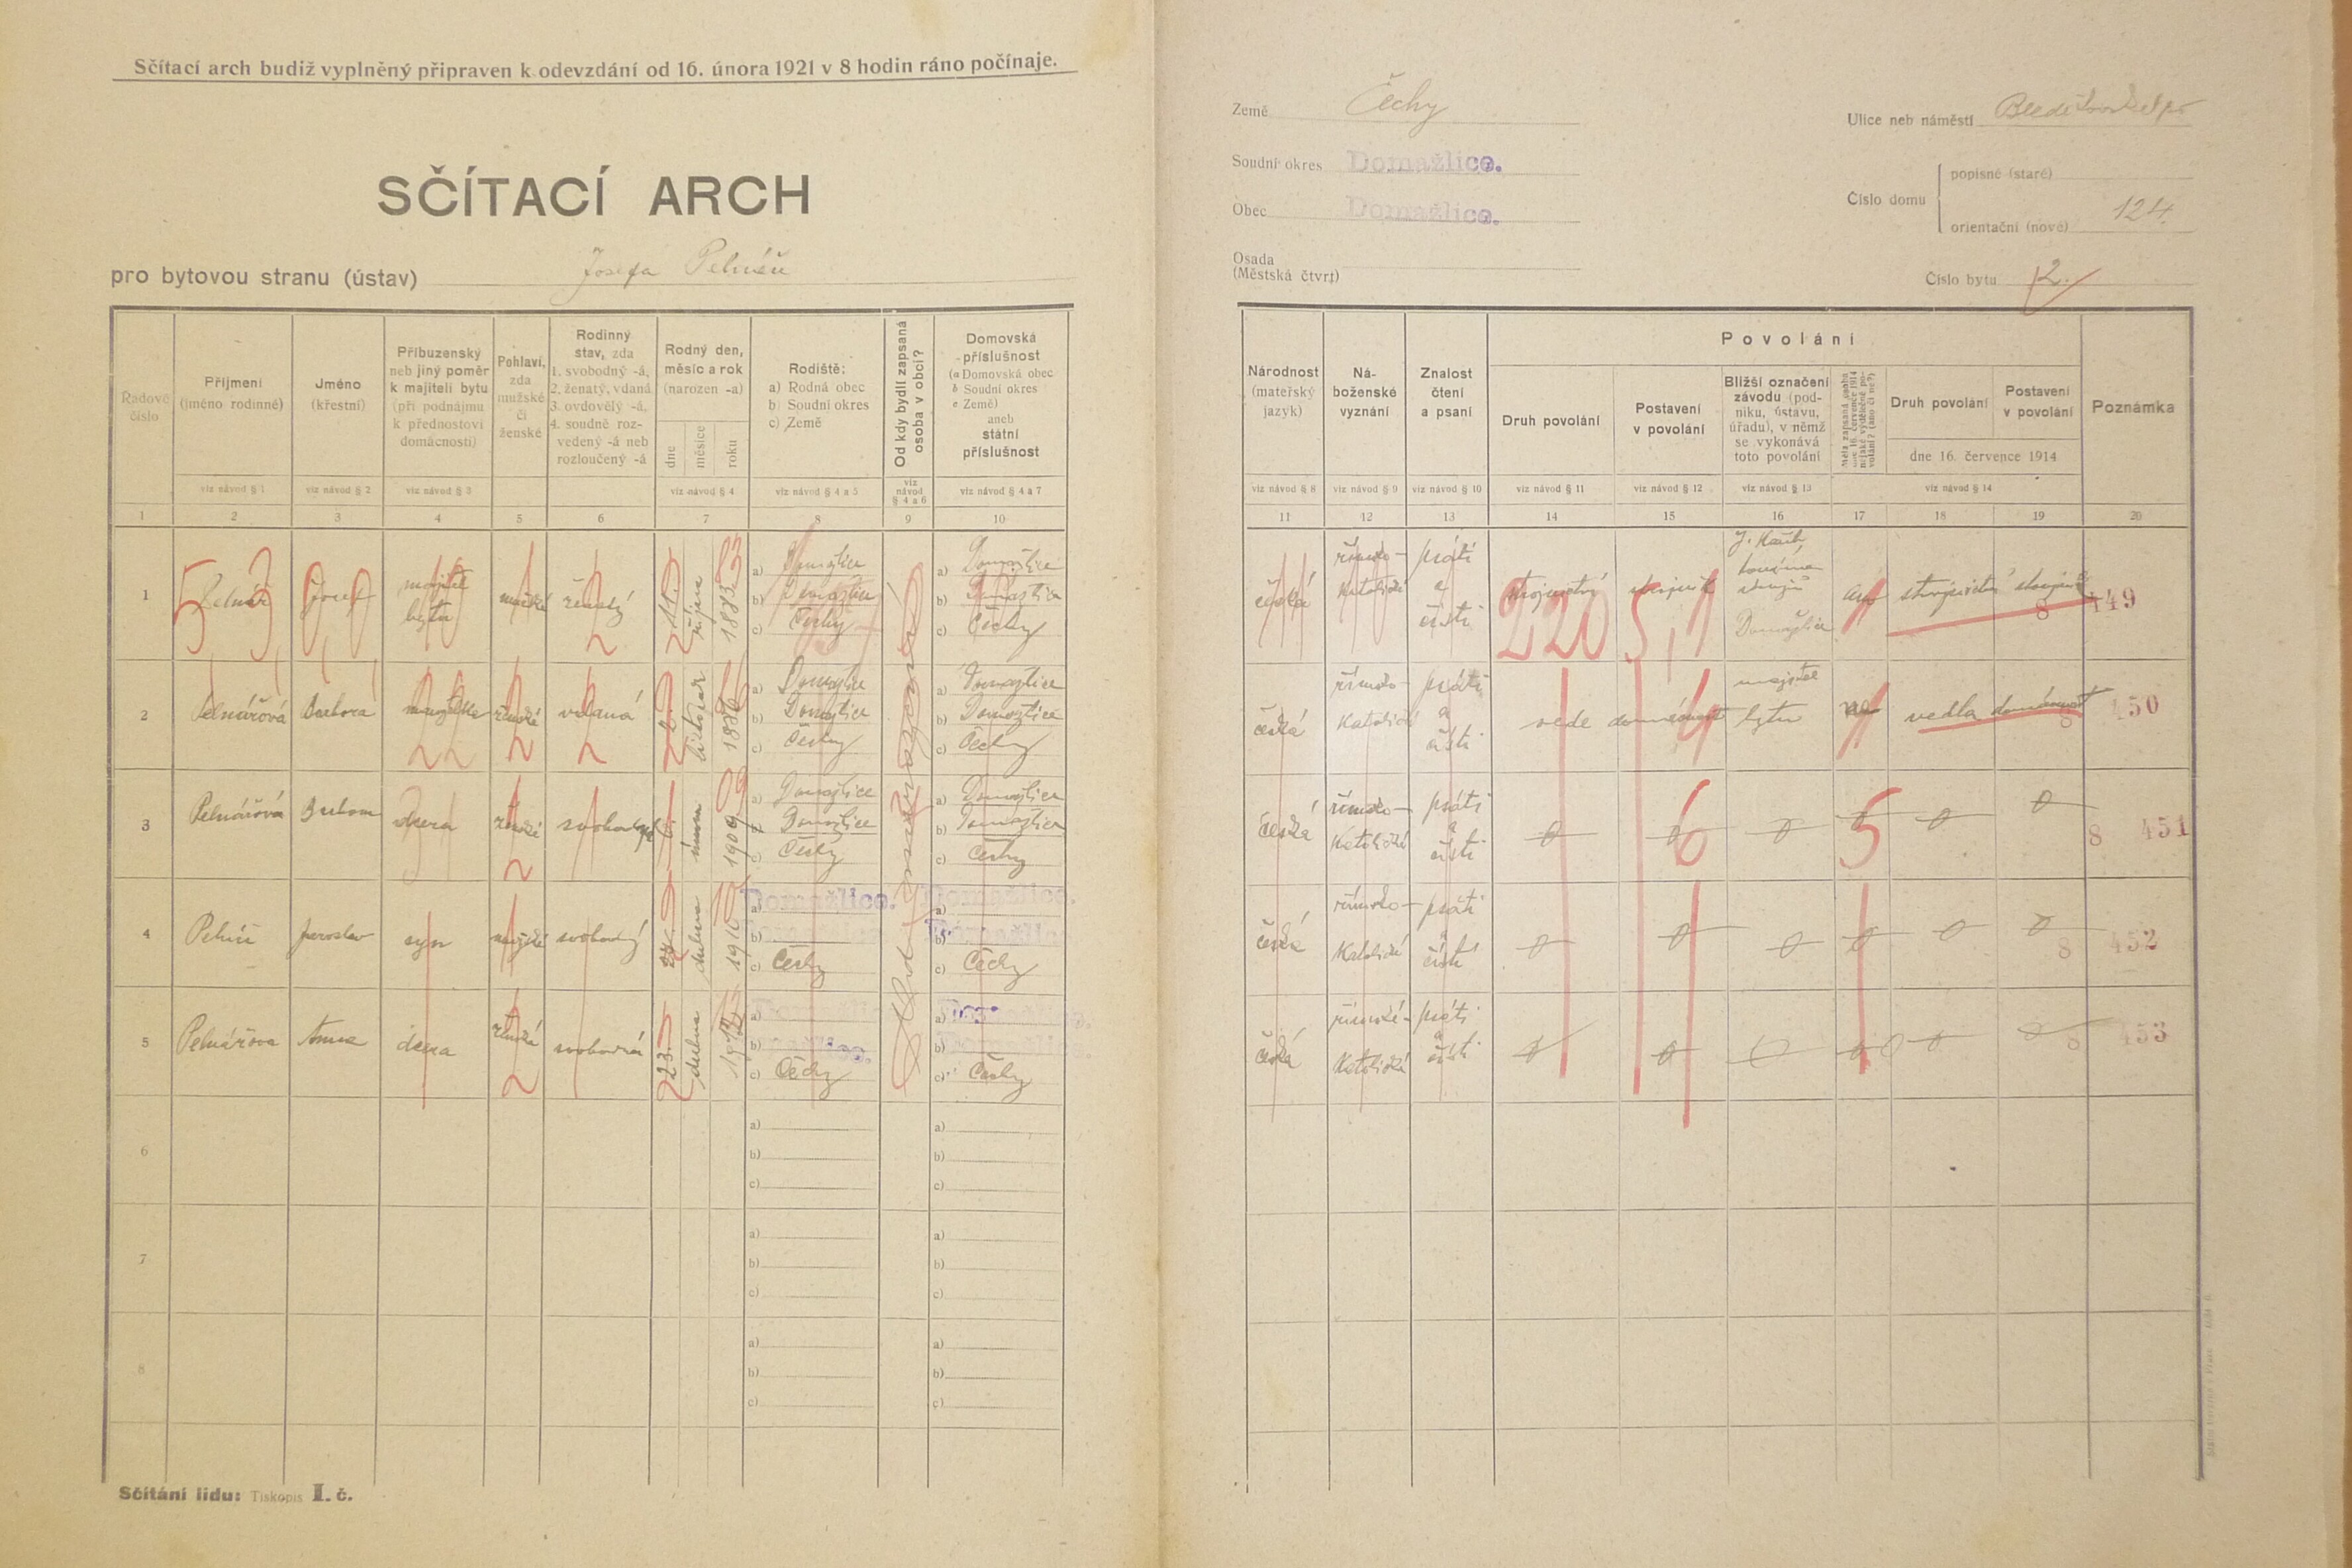 Sčítací arch budiž vyplněný připraven k odevzdání od 16. února 1921 v 8 hodin ráno počínaje.
SČÍTACÍ ARCH
pro bytovou stranu (ústav) Josefa
Země Čechy
Soudní okres Domažlice.
Obec Domažlice.
Osada
(Městská čtvrť)
Ulice neb náměstí
Číslo domu
popisné (staré)
orientační (nové) 124.
Číslo bytu 2.
Řadové číslo
Příjmení (jméno rodinné)
Jméno (křestní)
Příbuzenský neb jiný poměr k majiteli bytu (při podnájmu k přednostovi domácnosti)
Pohlaví, zda mužské či ženské
Rodinný stav, zda 1. svobodný -á, 2. ženatý, vdaná 3. ovdovělý -á, 4. soudně rozvedený -á neb rozloučený -á
Rodný den, měsíc a rok (narozen -a)
dne měsíce roku
Rodiště: a) Rodná obec b) Soudní okres c) Země
Od kdy bydlí zapsaná osoba v obci?
Domovská příslušnost (a Domovská obec b Soudní okres c Země) aneb státní příslušnost
viz návod § 1 viz návod § 2 viz návod § 3 viz návod § 4 viz návod § 4 a 5 viz návod § 4 a 6 viz návod § 4 a 7
1 2 3 4 5 6 7 8 9 10
Národnost (mateřský jazyk)
Náboženské vyznání
Znalost čtení a psaní
Povolání
Druh povolání
Postavení v povolání
Bližší označení závodu (podniku, ústavu, úřadu), v němž se vykonává toto povolání
Druh povolání
Postavení v povolání
dne 16. července 1914
Poznámka
viz návod § 8 viz návod § 9 viz návod § 10 viz návod § 11 viz návod § 12 viz návod § 13 viz návod § 14
11 12 13 14 15 16 17 18 19 20
1 Pelnář Josef majitel bytu mužské ženatý října 1883 83
a) Domažlice b) Domažlice c) Čechy
a) Domažlice b) Domažlice c) Čechy
česká římsko-katolické psáti a čísti 220 5,1 Domažlice 8 449
2 Pelnářová Barbora manželka ženské vdaná
a) Domažlice b) Domažlice c) Čechy
a) Domažlice b) Domažlice c) Čechy
česká římsko-katolické psáti a čísti vede domácnost majitel bytu ne vedla domácnost 8 450
3 Pelnářová Barbora dcera ženské svobodná února 1909 09
a) Domažlice b) Domažlice c) Čechy
a) Domažlice b) Domažlice c) Čechy
česká římsko-katolické psáti a čísti 0 0 6 0 5 0 0 8 451
4 Pelnář Jaroslav syn mužské svobodný dubna 1910 10
a) Domažlice. b) c) Čechy
a) Domažlice. b) Domažlice c) Čechy
česká římsko-katolické psáti a čísti 0 0 0 0 0 0 8 452
5 Pelnářova Anna dcera ženská svobodná 23. dubna
a) b) c) Čechy
a) b) c) Čechy
česká římské-katolické psáti a čísti 8 453
6 a) b) c) a) b) c)
7 a) b) c) a) b) c)
8 a) b) c) a) b) c)
Sčítání lidu: Tiskopis I. č.